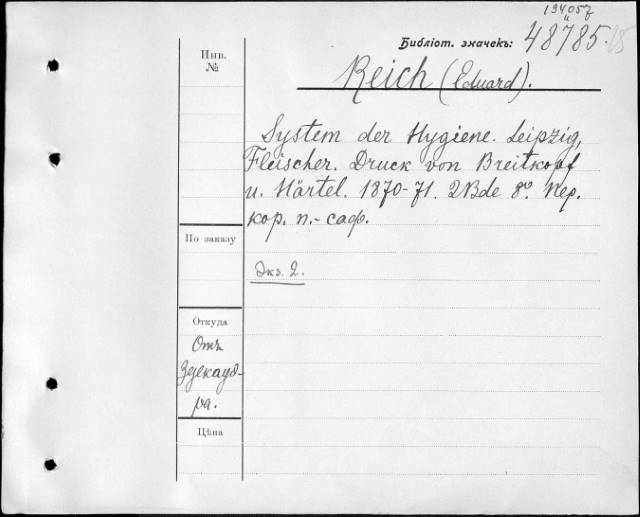 194057
"
Инв.
№
Библіот. значекъ:
48785.
Reich (Eduard).
System der Hygiene. Leipzig,
Fleischer. Druck von Breitkopf
u. Härtel. 1870-71. 2 Bde 8º. Пер.
кор. п.-саф.
По заказу
Экз. 2.
Откуда
Отъ
Здекауэ-
ра.
Цѣна